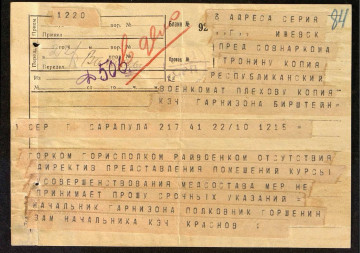 1220
Бланк № 92
84
3 АДРЕСА СЕРИЯ
"Г" ИЖЕВСК
ПРЕД СОВНАРКОМА
ТРОНИНУ КОПИЯ
РЕСПУБЛИКАНСКИЙ
ВОЕНКОМАТ ПЛЕХОВУ КОПИЯ
КЭЧ ГАРНИЗОНА БИРШТЕЙН
СЕР САРАПУЛА 217 41 22/10 1215
ГОРКОМ ГОРИСПОЛКОМ РАЙВОЕНКОМ ОТСУТСТВИЯ
ДИРЕКТИВ ПРЕДСТАВЛЕНИЯ ПОМЕЩЕНИЙ КУРСЫ
УСОВЕРШЕНСТВОВАНИЯ МЕДСОСТАВА МЕР НЕ
ПРИНИМАЕТ ПРОШУ СРОЧНЫХ УКАЗАНИЙ
НАЧАЛЬНИК ГАРНИЗОНА ПОЛКОВНИК ГОРШЕНИН
ЗАМ НАЧАЛЬНИКА КЭЧ КРАСНОВ